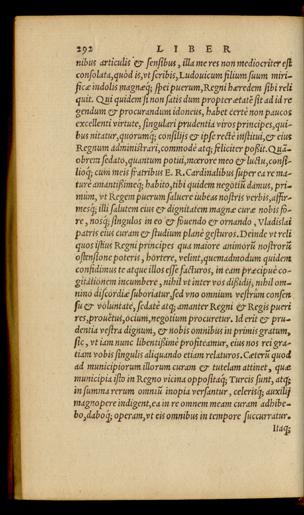 292 LIBER
nibus articulis & sensibus, illa me res non mediocriter est
consolata, quòd is, vt scribis, Ludouicum filium suum miri-
ficæ indolis magnæq; spei puerum, Regni hæredem sibi reli
quit. Qui quidem si non satis dum propter ætatē sit ad id re
gendum & procurandum idoneus, habet certè non paucos
excellenti virtute, singulari prudentia viros principes, qui-
bus nitatur, quorumq; consilijs & ipse rectè institui, & eius
Regnum administrari, commodè atq; feliciter possit. Quā-
obrem sedato, quantum potui, mœrore meo & luctu, consi-
lioq; cum meis fratribus E. R. Cardinalibus super ea re ma-
turè amantißimeq; habito, tibi quidem negotiū damus, pri-
mùm, vt Regem puerum saluere iubeas nostris verbis, affir-
mesq; illi salutem eius & dignitatem magnæ curæ nobis fo-
re, nosq; singulos in eo & fouendo & ornando, Vladislai
patris eius curam & studium planè gesturos. Deinde vt reli
quos istius Regni principes qua maiore animorū nostrorū
ostensione poteris, hortere, velint, quemadmodum quidem
confidimus te atque illos esse facturos, in eam præcipuè co-
gitationem incumbere, nihil vt inter vos dißidij, nihil om-
nino discordiæ suboriatur, sed vno omnium vestrûm consen
su & voluntate, sedatè atq; amanter Regni & Regis pueri
res, prouētus, ocium, negotium procuretur. Id erit & pru-
dentia vestra dignum, & nobis omnibus in primis gratum,
sic, vt iam nunc libentißimè profiteamur, eius nos rei gra-
tiam vobis singulis aliquando etiam relaturos. Cæterū quod
ad municipiorum illorum curam & tutelam attinet, quæ
municipia isto in Regno vicina oppositaq; Turcis sunt, atq;
in summa rerum omniū inopia versantur, celerisq; auxilij
magnopere indigent, ea in re omnem meam curam adhibe-
bo, daboq; operam, vt eis omnibus in tempore succurratur.
Itaq;